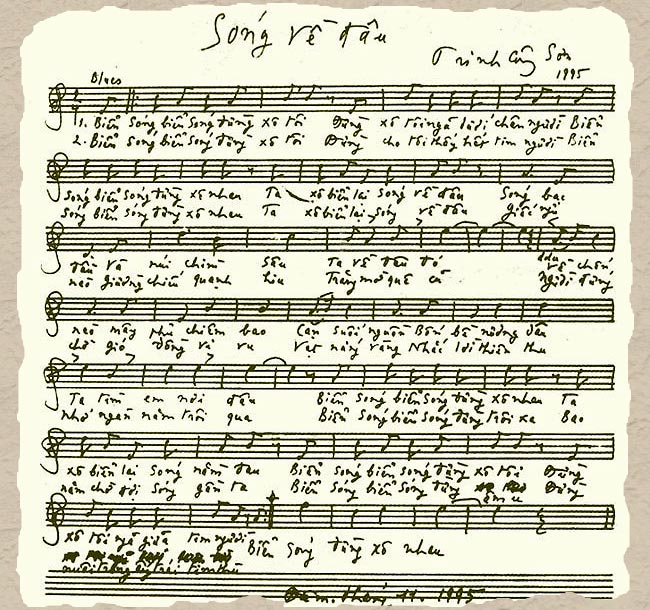 Sóng về đâu
Trịnh Công Sơn
1995
Blues
1. Biển sóng biển sóng đừng xô tôi Đừng xô tôi ngã dưới chân người Biển
2. Biển sóng biển sóng đừng xô tôi Đừng cho tôi thấy hết tim người Biển
sóng biển sóng đừng xô nhau Ta xô biển lại sóng về đâu Sóng bạc
sóng biển sóng đừng xô nhau Ta xô biển lại sóng về đâu giấc ngủ
đầu và núi chìm sâu Ta về đâu đó về chốn
nao giường chiếu quạnh hiu Trăng mờ quê cũ Người đứng
nào mây phủ chiêm bao Cạn suối nguồn Bốn bề nương dâu
chờ gió đồng vi vu Vạt nắng vàng Nhắc lời thiên thu
Ta tìm em nơi đâu Biển sóng biển sóng đừng xô nhau Ta
nhớ ngàn năm trôi qua Biển sóng biển sóng đừng trôi xa Bao
xô biển lại sóng nằm đau Biển sóng biển sóng đừng xô tôi Đừng
năm chờ đợi sóng gần ta Biển sóng biển sóng đừng âm u Đừng
xô tôi ngã giữa tim người Biển sóng đừng xô nhau
11. 1995